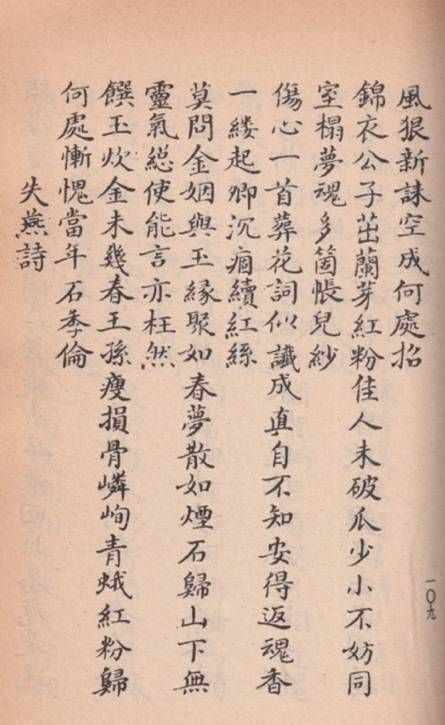 風狠新誄空成何處招
錦衣公子茁蘭芽紅粉佳人未破瓜少小不妨同
室榻夢魂多箇帳兒紗
傷心一首葬花詞似讖成真自不知安得返魂香
一縷起卿沉痼續紅絲
莫問金姻與玉緣聚如春夢散如煙石歸山下無
靈氣縂使能言亦枉然
饌玉炊金未幾春王孫瘦損骨嶙峋青蛾紅粉歸
何處慚愧當年石季倫
失燕詩
一〇九